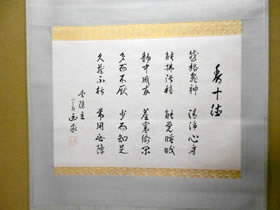 香十徳
感格鬼神 清浄心身
能拂汚穢 能覚睡眠
静中成友 塵裏偸閑
多而不厭 少而知足
久蔵不朽 常用無障